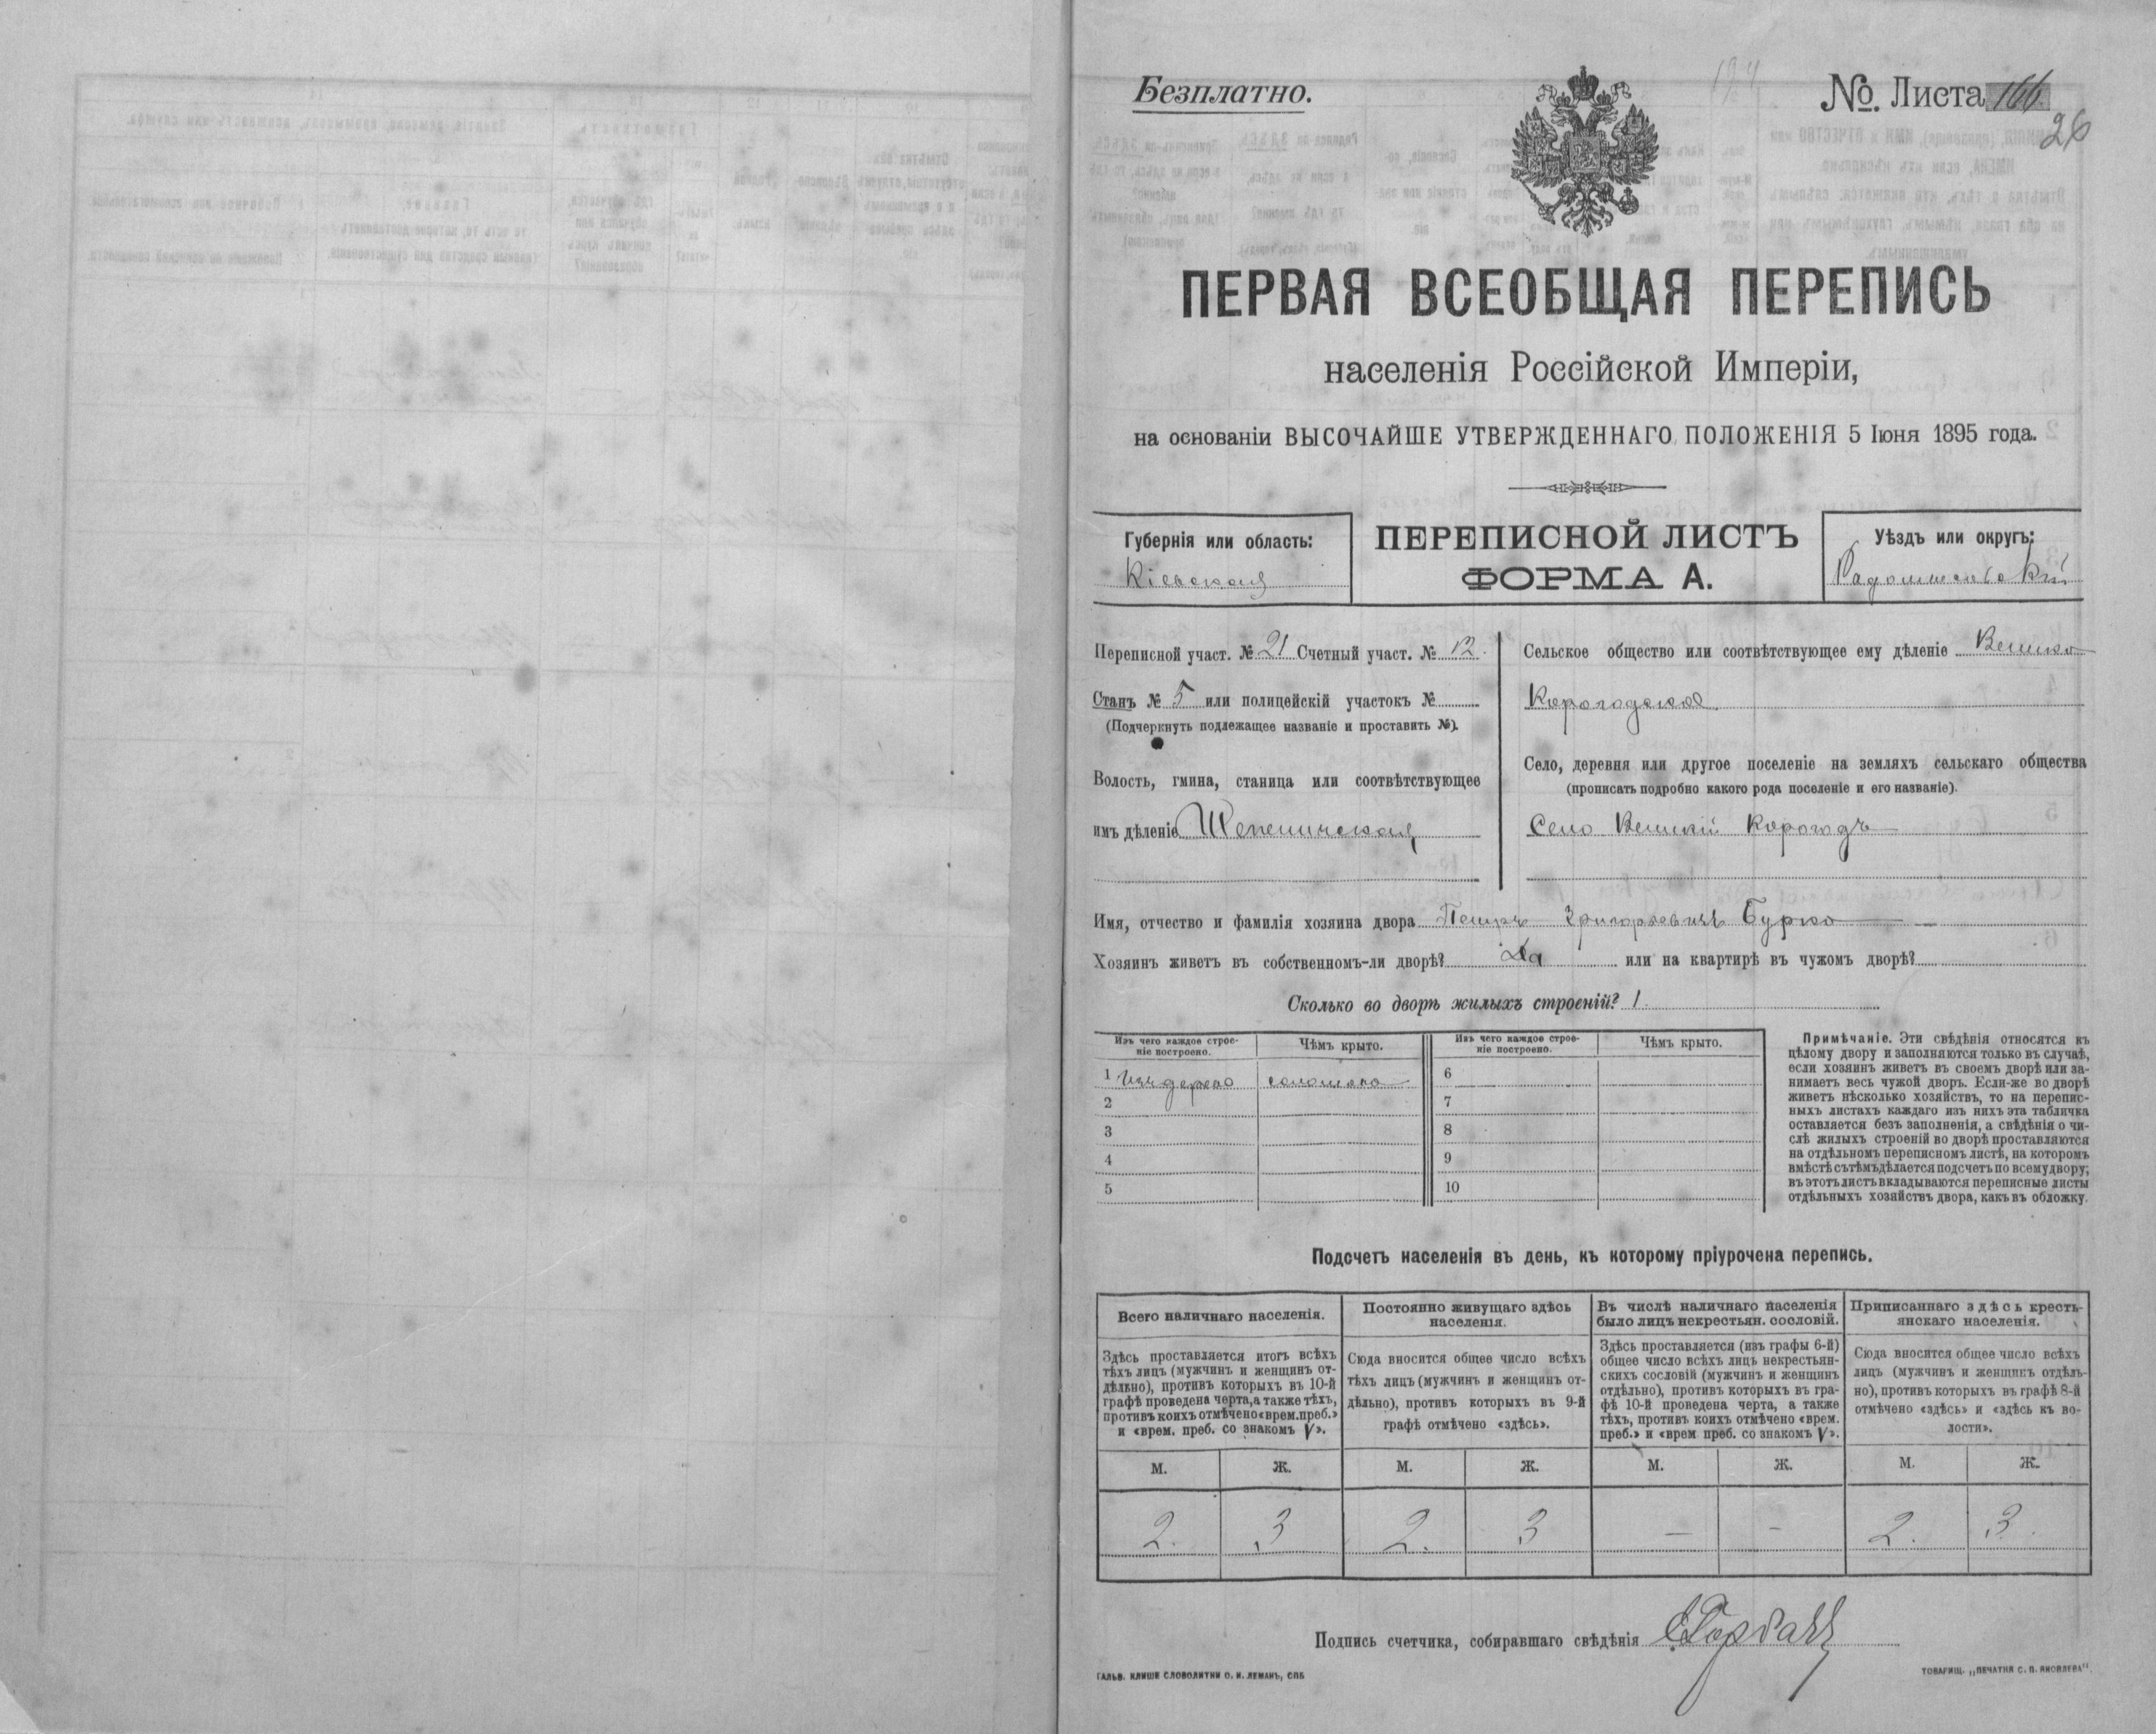 Безплатно.
№. Листа 166.
26
194
ПЕРВАЯ ВСЕОБЩАЯ ПЕРЕПИСЬ
населенія Россійской Имперіи,
на основаніи ВЫСОЧАЙШЕ УТВЕРЖДЕННАГО ПОЛОЖЕНІЯ 5 Іюня 1895 года.
Губернія или область:
Кіевская
ПЕРЕПИСНОЙ ЛИСТЪ
ФОРМА А.
Уѣздъ или округъ:
Радомысльскій
Переписной участ. № 21 Счетный участ. № 12.
Станъ № 5 или полицейскій участокъ №
(Подчеркнуть подлежащее названіе и проставить №).
Волость, гмина, станица или соотвѣтствующее
имъ дѣленіе Шепеличская
Сельское общество или соотвѣтствующее ему дѣленіе Велико
Корогодское.
Село, деревня или другое поселеніе на земляхъ сельскаго общества
(прописать подробно какого рода поселеніе и его названіе).
Село Великій Корогодъ
Имя, отчество и фамилія хозяина двора Петръ Григорьевичъ Бурко
Хозяинъ живетъ въ собственномъ-ли дворѣ? Да или на квартирѣ въ чужомъ дворѣ?
Сколько во дворѣ жилыхъ строеній? 1.
Изъ чего каждое строе-
ніе построено.
Чѣмъ крыто.
Изъ чего каждое строе-
ніе построено.
Чѣмъ крыто.
1 Изъ дерево соломою 6
2 7
3 8
4 9
5 10
Примѣчаніе. Эти свѣдѣнія относятся къ
цѣлому двору и заполняются только въ случаѣ,
если хозяинъ живетъ въ своемъ дворѣ или за-
нимаетъ весь чужой дворъ. Если-же во дворѣ
живетъ нѣсколько хозяйствъ, то на перепис-
ныхъ листахъ каждаго изъ нихъ эта табличка
оставляется безъ заполненія, а свѣдѣнія о чи-
слѣ жилыхъ строеній во дворѣ проставляются
на отдѣльномъ переписномъ листѣ, на которомъ
вмѣстѣ съ тѣмъ дѣлается подсчетъ по всему двору;
въ этотъ листъ вкладываются переписные листы
отдѣльныхъ хозяйствъ двора, какъ въ обложку.
Подсчетъ населенія въ день, къ которому пріурочена перепись.
Всего наличнаго населенія.
Здѣсь проставляется итогъ всѣхъ
тѣхъ лицъ (мужчинъ и женщинъ от-
дѣльно), противъ которыхъ въ 10-й
графѣ проведена черта, а также тѣхъ,
противъ коихъ отмѣчено «врем. преб.»
и «врем. преб. со знакомъ V».
Постоянно живущаго здѣсь
населенія.
Сюда вносится общее число всѣхъ
тѣхъ лицъ (мужчинъ и женщинъ от-
дѣльно), противъ которыхъ въ 9-й
графѣ отмѣчено «здѣсь».
Въ числѣ наличнаго населенія
было лицъ некрестьян. сословій.
Здѣсь проставляется (изъ графы 6-й)
общее число всѣхъ лицъ некрестьян-
скихъ сословій (мужчинъ и женщинъ
отдѣльно), противъ которыхъ въ гра-
фѣ 10-й проведена черта, а также
тѣхъ, противъ коихъ отмѣчено «врем.
преб.» и «врем преб. со знакомъ V».
Приписаннаго здѣсь кресть-
янскаго населенія.
Сюда вносится общее число всѣхъ
лицъ (мужчинъ и женщинъ отдѣль-
но), противъ которыхъ въ графѣ 8-й
отмѣчено «здѣсь» и «здѣсь къ во-
лости».
М. Ж. М. Ж. М. Ж. М. Ж.
2. 3 2. 3 — - 2. 3.
Подпись счетчика, собиравшаго свѣдѣнія
ГАЛЬВ. КЛИШЕ СЛОВОЛИТНИ О. И. ЛЕМАНЪ, СПБ
ТОВАРИЩ. „ПЕЧАТНЯ С. П. ЯКОВЛЕВА“.